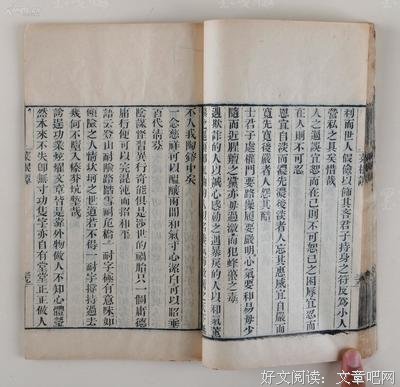 利而世人假儉以飾其吝君子持身之符反為小人
營私之具矣惜哉
人之過誤宜恕而在己則不可恕己之困辱宜忍而
在人則不可忍
恩宜自淡而濃先濃後淡者人忘其惠威宜自嚴而
寬先寬後嚴者人怨其酷
士君子處權門要路操履要嚴明心氣要和易毋少
隨而近腥羶之黨亦毋過激而犯蜂蠆之毒
遇欺詐的人以誠心感動之遇暴戾的人以和氣薰
不入我陶鎔中矣
一念慈祥可以醞釀兩間和氣寸心潔白可以昭垂
百代清芬
陰謀怪習異行奇能俱是涉世的禍胎只一個庸德
庸行便可以完混沌而招和平
語云登山耐險路踏雪耐危橋一耐字極有意味如
傾險之人情坎坷之世道若不得一耐字撐持過去
幾何不墮入榛莽坑塹哉
誇逞功業炫耀文章皆是靠外物做人不知心體瑩
然本來不失即無寸功隻字亦自有堂堂正正做人
菜根譚
好文阅读：文章吧网